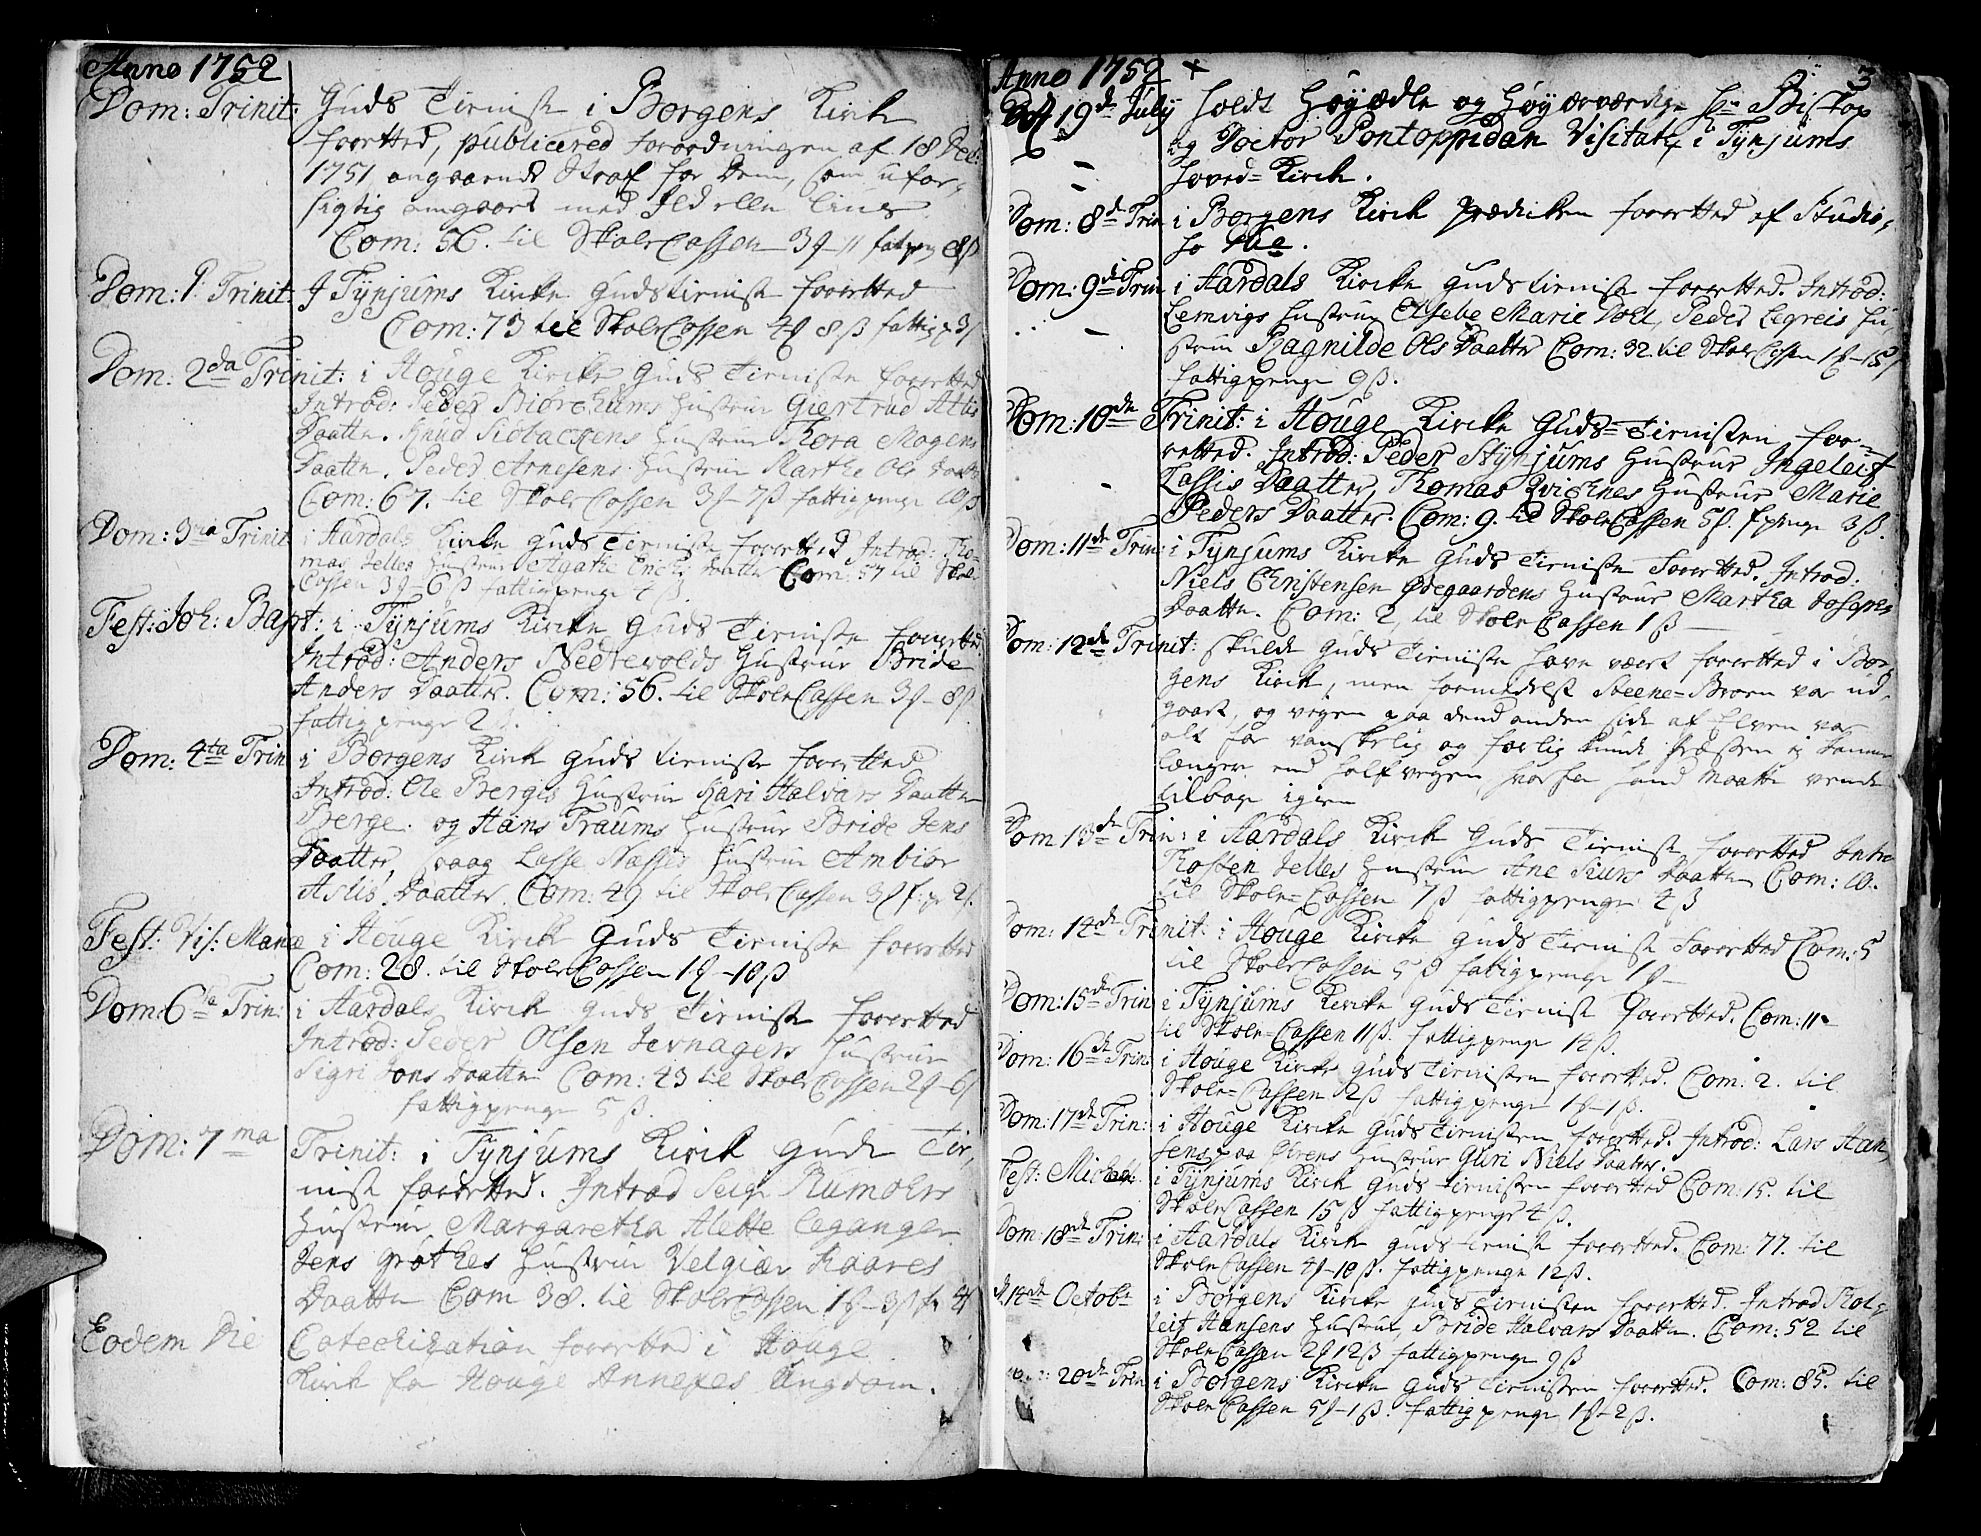 Anno 1752
Dom: Trinit: Guds Tieniste i Borgens Kirke
forretted, publicered Forordningen af 18 Dec:
1751 angaaende Straf for dem, som ufor-
sigtig omgaaes med Ild eller Lius.
Com: 56. til Skole Cassen 3 -11 fatpeng 8ß
Dom: 1 Trinit: I Tÿnjums Kirke Gudstieniste forretted
Com: 73 til Skole Cassen 4 8ß fattigp 3
Dom: 2da Trinit: i Houge Kirke Guds Tieniste forretted
Introd: Peder Hustrue Giertrud Atlis
Daatter. Knud Hustrue Thora Mogens
Daatter. Peder Arnesens Hustrue Marthe Ols Daatter
Com: 67. til Skole Cassen 3 -7ß fattigpenge 10ß
Dom: 3tia Trinit: i Aardals Kirke Guds Tieniste forretted Introd: Tho-
mas Jelles Hustrue Agathe Erichs Daatter Com: 57 til Skole
Cassen 3 -6ß fattigpenge ß.
Fest: Joh: Bapt: i Tÿnjums Kirke Guds Tieniste forretted
Introd: Anders Nedrevolds Hustrue Bride
Anders Daatter. Com: 56. til Skole Cassen 3 -8ß
fattigpenge 2
Dom: 4ta Trin i Borgens Kirke Guds tieniste forretted
Introd: Ole Berges Hustrue Kari Halvars Daatter
Berge. og Hans Traums Hustrue Bride Jens
Daatter, saa og Lasse Hustrue Ambior
Aslis Daatter. Com: 49 til Skole Cassen 3 f:p 2
Fest: Vis: Mariæ i Houge Kirke Guds Tieniste forretted
Com: 28. til Skole Cassen 1 -10ß
Dom: 6ta Trin: i Aardals Kirke Guds Tieniste forretted
Introd: Peder Olsen Hustrue
Sigri Jons Daatter Com: 43 til Skole Cassen 2 -6
fattigpenge 5ß.
Dom: 7ma Trinit: i Tÿnjums Kirke Guds Tie-
niste forretted. Introd Seigr Rumohrs
Hustrue Margaretha Alette Leganger
Jens Grøthes Hustrue Velgiær Kaares
Daatter Com 38. til Skole Cassen 1 -3ß fr 4
Eodem Die Catechization forretted i Houge
Kirke for Houge Annexes Ungdom.
Anno 1752 3
19de Julÿ holdt Høyædle og Høyærværdige Hr Biskop
og Doctor Pontoppidan Visitatz i Tÿnjums
Hoved-Kirke.
Dom: 8de Trin i Borgens Kirke Prædiken forretted af Studio-
so
Dom: 9de Trin i Aardals Kirke Gudstieniste forretted. Introd:
Lemvigs Hustrue Elsebe Marie , Peder Legreis Hu-
strue Ragnilde Ols Daatter Com: 32. til Skole Cassen 1 -15
fattigpenge 9ß.
Dom: 10de Trinit: i Houge Kirke Guds-Tienisten for-
retted. Introd: Peder Stÿnjums Hustrue Ingeleif
Lassis Daatter, Thomas Qvichnes Hustrue Marie
Peders Daatter. Com: 9. til Skole Cassen 5 . f:penge 3ß.
Dom: 11de Trin: i Tÿnjums Kirke Guds Tieniste Forretted. Introd:
Niels Christensen Ødegaardens Hustrue Martha Josephs
Daatter. Com: 2, til Skole Cassen 1ß
Dom: 12de Trinit: skulde Guds Tieniste have vært forretted i Bor-
gens Kirke, men formedelst Steene-Broen var ud-
gaaet, og vejen paa dend anden side af Elven var
alt for vanskelig og farlig kunde Præsten ej komme
længere end halfvejen, hvorfor hand maatte vende
tilbage igien
Dom 13de Trin: i Aardals Kirke Guds Tieniste forretted Intro
Thosten Jelles Hustrue Ane Siurs Daatter Com: 10.
til Skole-Cassen 7ß fattigpenge 4ß
Dom: 14de Trinit: i Houge Kirke Guds Tieniste Forretted Com: 5
til Skole Cassen 5ß fattigpenge 1 -
Dom: 15de Trin i Tÿnjums Kirke Guds Tieniste Forretted. Com: 11-
til Skole-Cassen 11ß. fattigpenge 14ß.
Dom: 16de Trin: i Houge Kirke Guds Tienisten forretted. Com: 2. til
Skole-Cassen 12ß fattigpenge 1 -1ß.
Dom: 17de Trin: i Houge Kirke Guds Tienisten forretted. Introd: Lars Han-
sens paa Ørens Hustrue Guri Niels Daatter.
Fest: Michael: i Tÿnjums Kirke Guds Tienisten forretted Com: 15. til
Skole Cassen 15ß fattigpenge 4ß.
Dom: 18de Trin: i Aardals Kirke Guds tieniste forretted. Com: 77. til
Skole Cassen 4 -10ß. fattigpenge 12ß.
d. 12de Octobr i Borgens Kirke Guds Tienisten forretted. Introd Thol-
leif Hansens Hustrue Bride Halvars Daatter. Com: 52 til
Skole Cassen 2 12ß fattigpenge 9ß
20de Trin i Borgens Kirke Guds Tienisten forretted. Com: 85. til
Skole Cassen 5 -1ß. fattigpenge 1 -2ß.